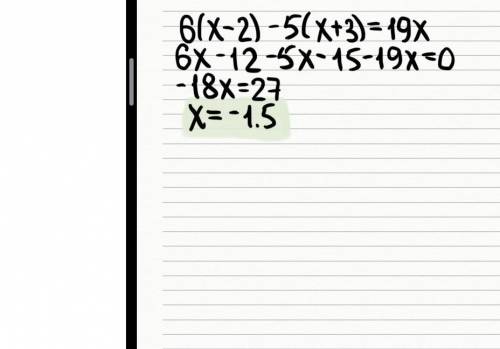 6(x-2)-5(x+3)=19x
6x-12-5x-15-19x=0
-18x=27
x=-1.5